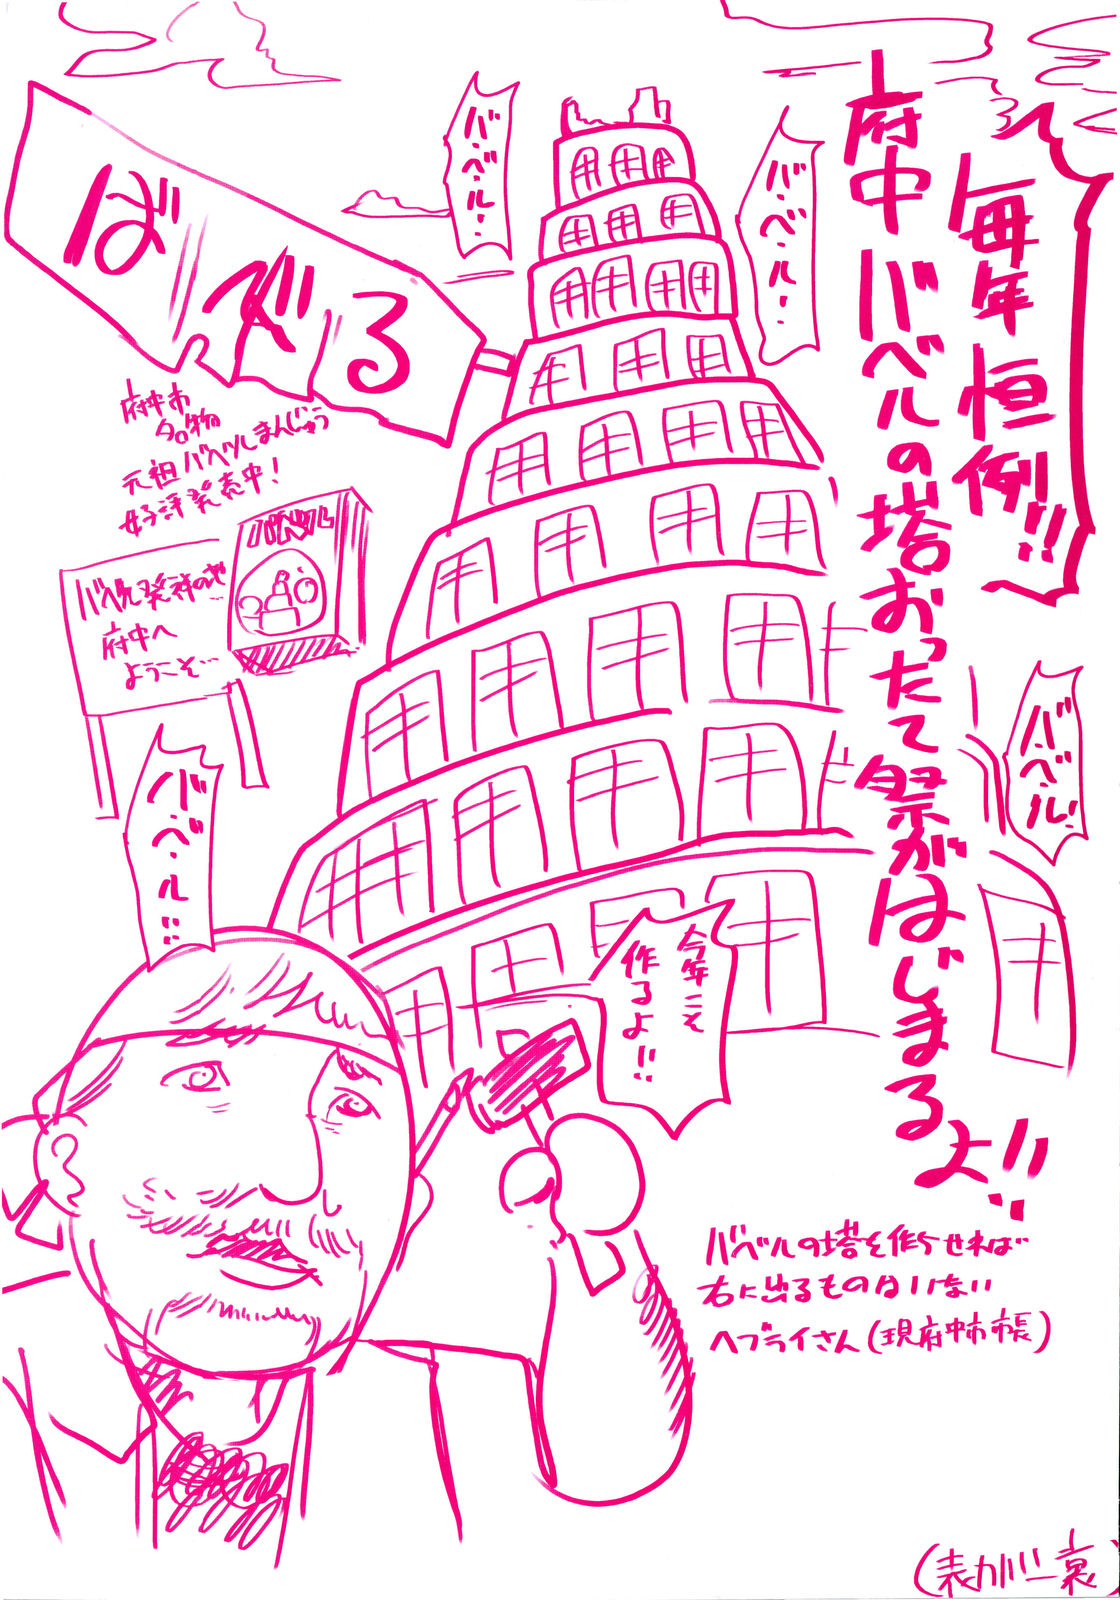 毎年恒例!!
府中バベルの塔おったて祭がはじまるよ!!
バ・ベ・ル・・
バ・ベ・ル・・
ばべる
府中市
名物
元祖バベルまんじゅう
好評発売中!
バベル
バベル発祥の地
府中へ
ようこそ…
バ・ベ・ル!
バ・ベ・ル!!
今年こそ
作るよ!!
バベルの塔を作らせれば
右に出るものはいない
ヘブライさん(現府中市長)